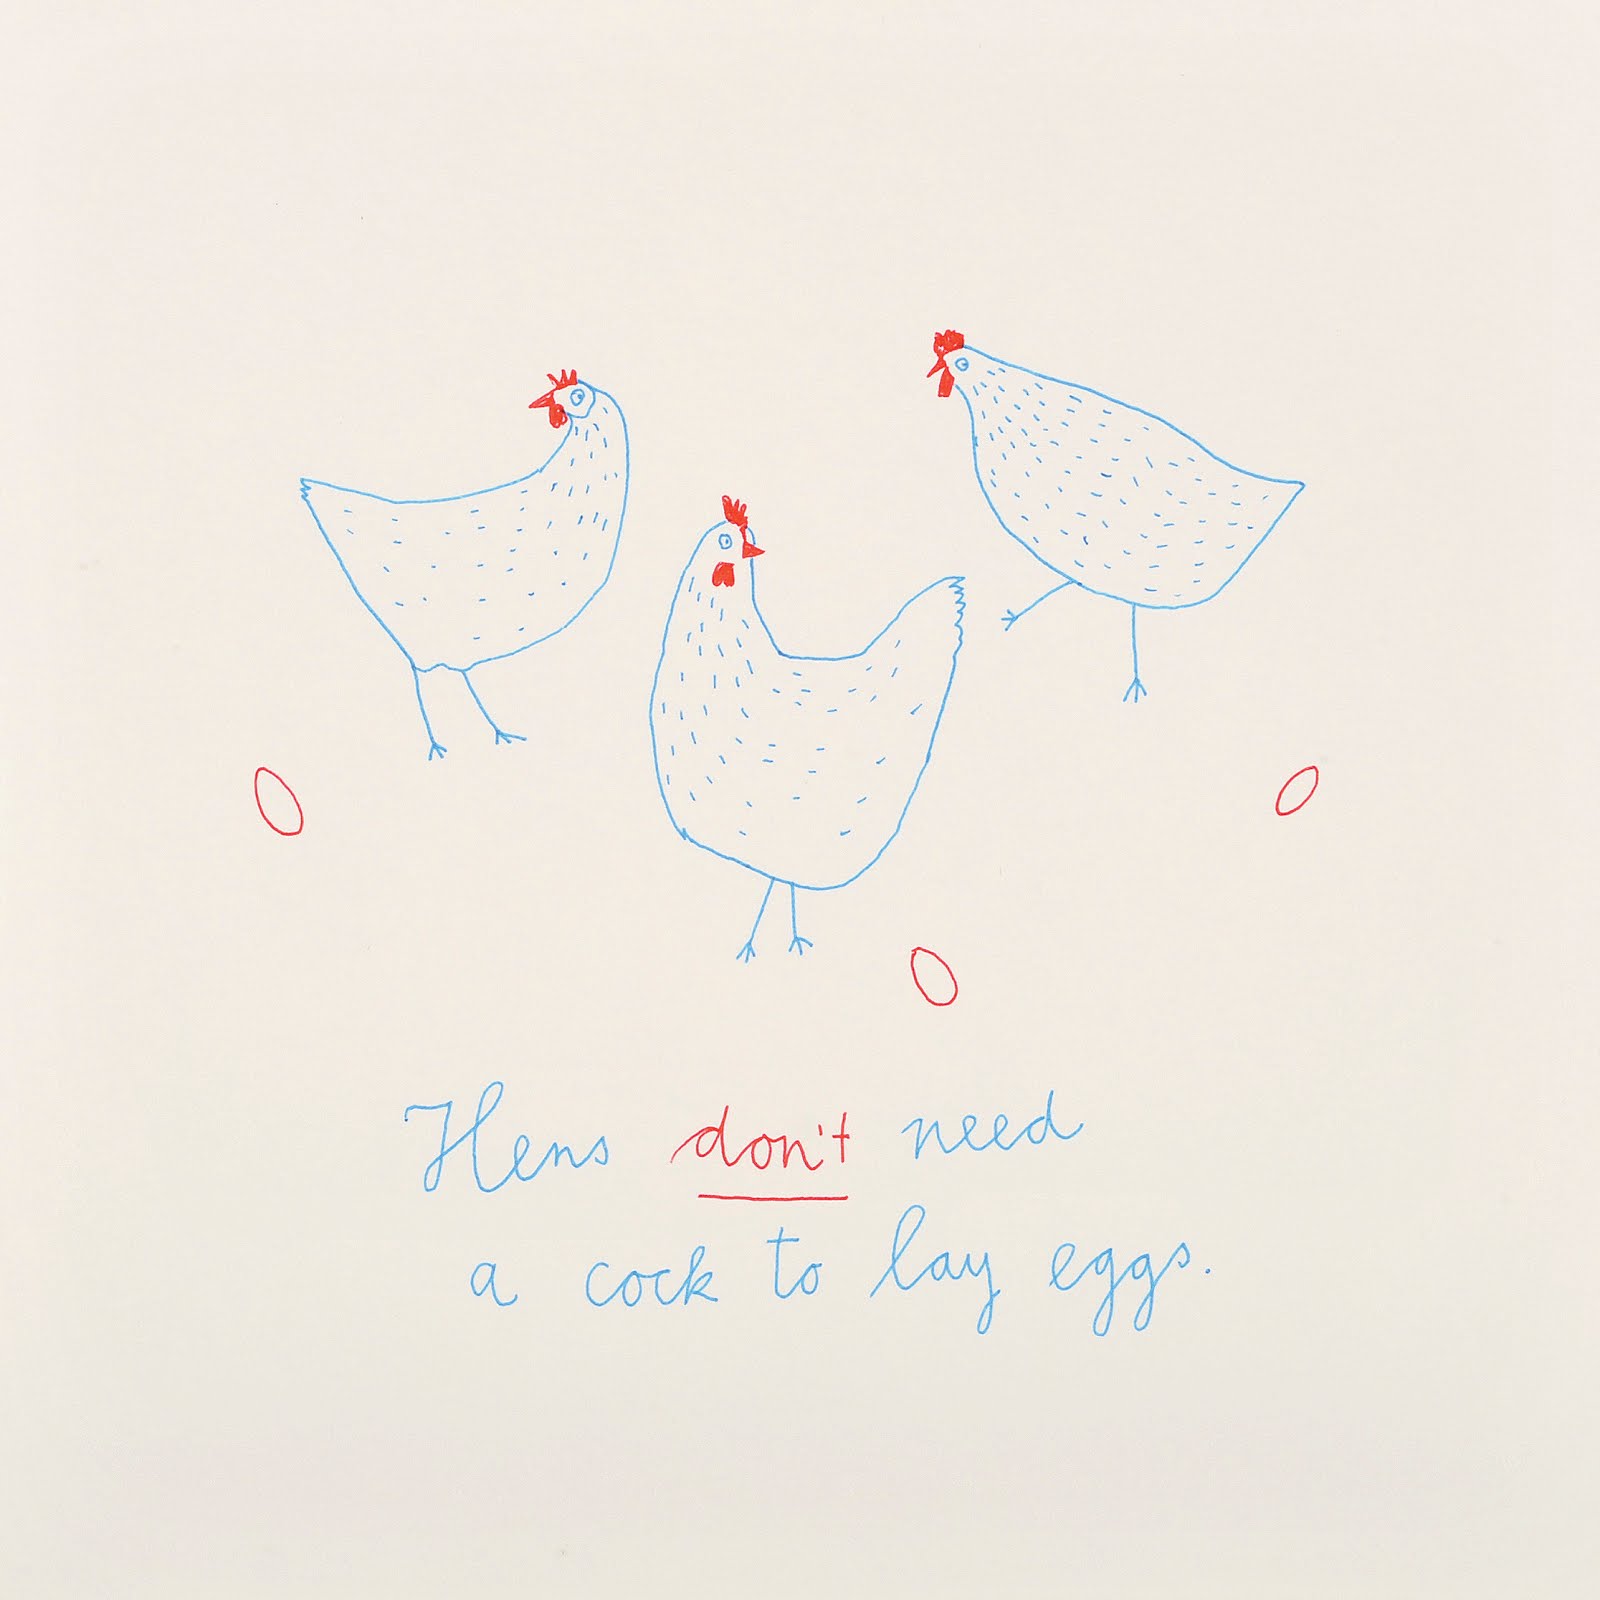 Hens don't need
a cock to lay eggs.